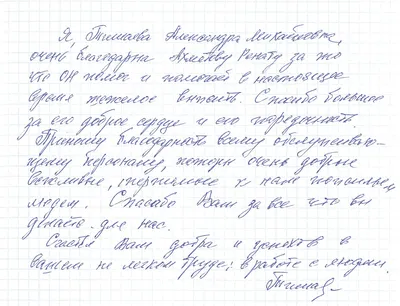 Я, Тишаева Александра Михайловна,
очень благодарна Ахметову Ренату за то
что он помог и помогает в настоящее
время тяжелое выжить. Спасибо большое
за его доброе сердце и его порядочность.
Приношу благодарность всему обслуживаю-
щему персоналу, которые очень добрые
вежливые, терпимые к нам пожилым
людям. Спасибо Вам за все что вы
делаете для нас.
Счастья Вам добра и успехов в
вашем не легком труде: в работе с людьми.